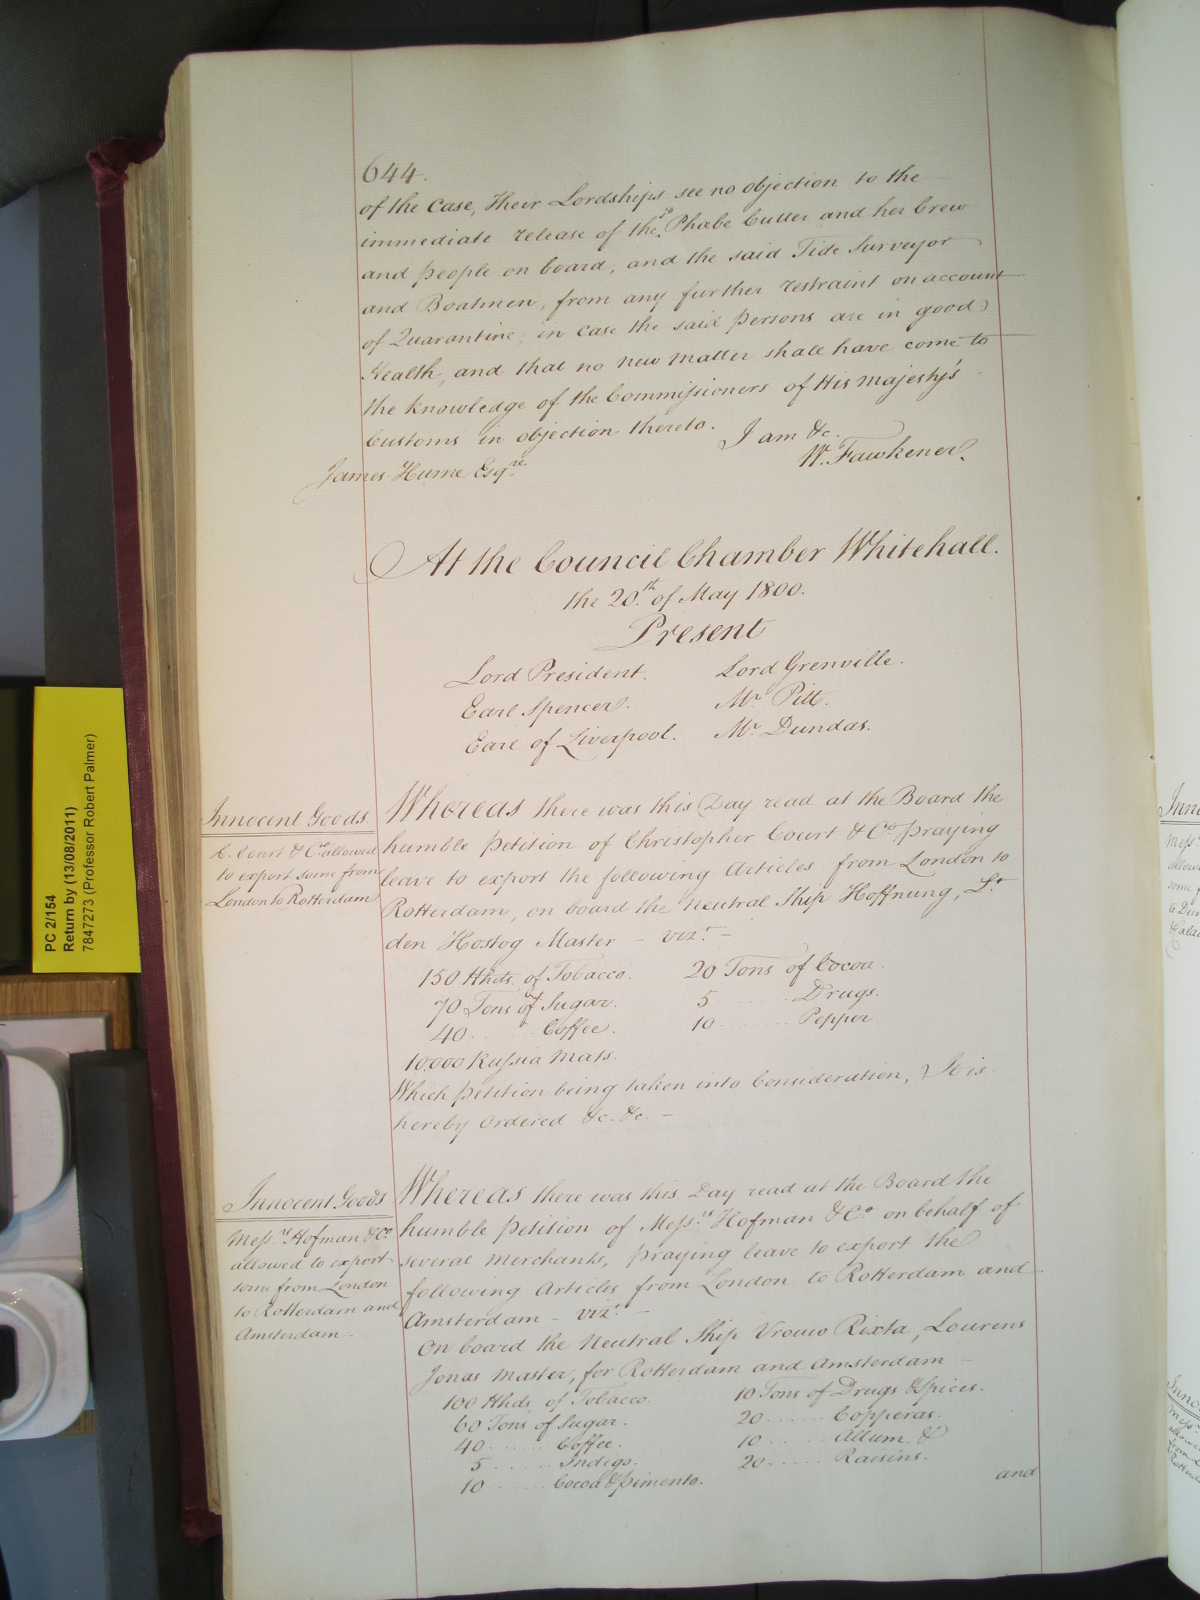 644.
of the Case, Their Lordships see no objection to the
immediate release of the sd. Phabe Cutter and her Crew
and people on board, and the said Tide Surveyor
and Boatmen, from any further restraint on account
of Quarantine, in case the said persons are in good
Health, and that no new matter shall have come to
the knowledge of the Commissioners of His Majesty's
Customs in objection thereto. I am &c.
W. Fawkener.
James Hume Esqre.
At the Council Chamber Whitehall.
the 20th. of May 1800.
Present
Lord President. Lord Grenville.
Earl Spencer. Mr. Pitt.
Earl of Liverpool. Mr. Dundas.
Innocent Goods.
C. Court & Co. allowed
to export some from
London to Rotterdam
Whereas there was this Day read at the Board the
humble Petition of Christopher Court & Co. praying
leave to export the following Articles from London to
Rotterdam, on board the Neutral Ship Hoffnung,
den Hostog Master – vizt. –
150 Hhds. of Tobacco. 20 Tons of Cocoa.
70 Tons of Sugar. 5 ........ Drugs.
40 ........ Coffee. 10 ........ Pepper.
10,000 Russia Mats.
Which Petition being taken into Consideration, It is
hereby Ordered &c. &c. –
Innocent Goods
Messrs. Hofman & Co.
allowed to export
some from London
to Rotterdam and
Amsterdam.
Whereas there was this Day read at the Board the
humble Petition of Messrs. Hofman & Co. on behalf of
several Merchants, praying leave to export the
following Articles from London to Rotterdam and
Amsterdam – vizt. –
On board the Neutral Ship Vrouw Rixta, Lourens
Jonas Master, for Rotterdam and Amsterdam –
100 Hhds. of Tobacco. 10 Tons of Drugs & Spices.
60 Tons of Sugar. 20 ...... Copperas.
40 ...... Coffee. 10 ...... Allum. &
5 ...... Indigo. 20 ...... Raisins.
10 ...... Cocoa & Pimento.
and
PC 2/154
Return by (13/08/2011)
7847273 (Professor Robert Palmer)